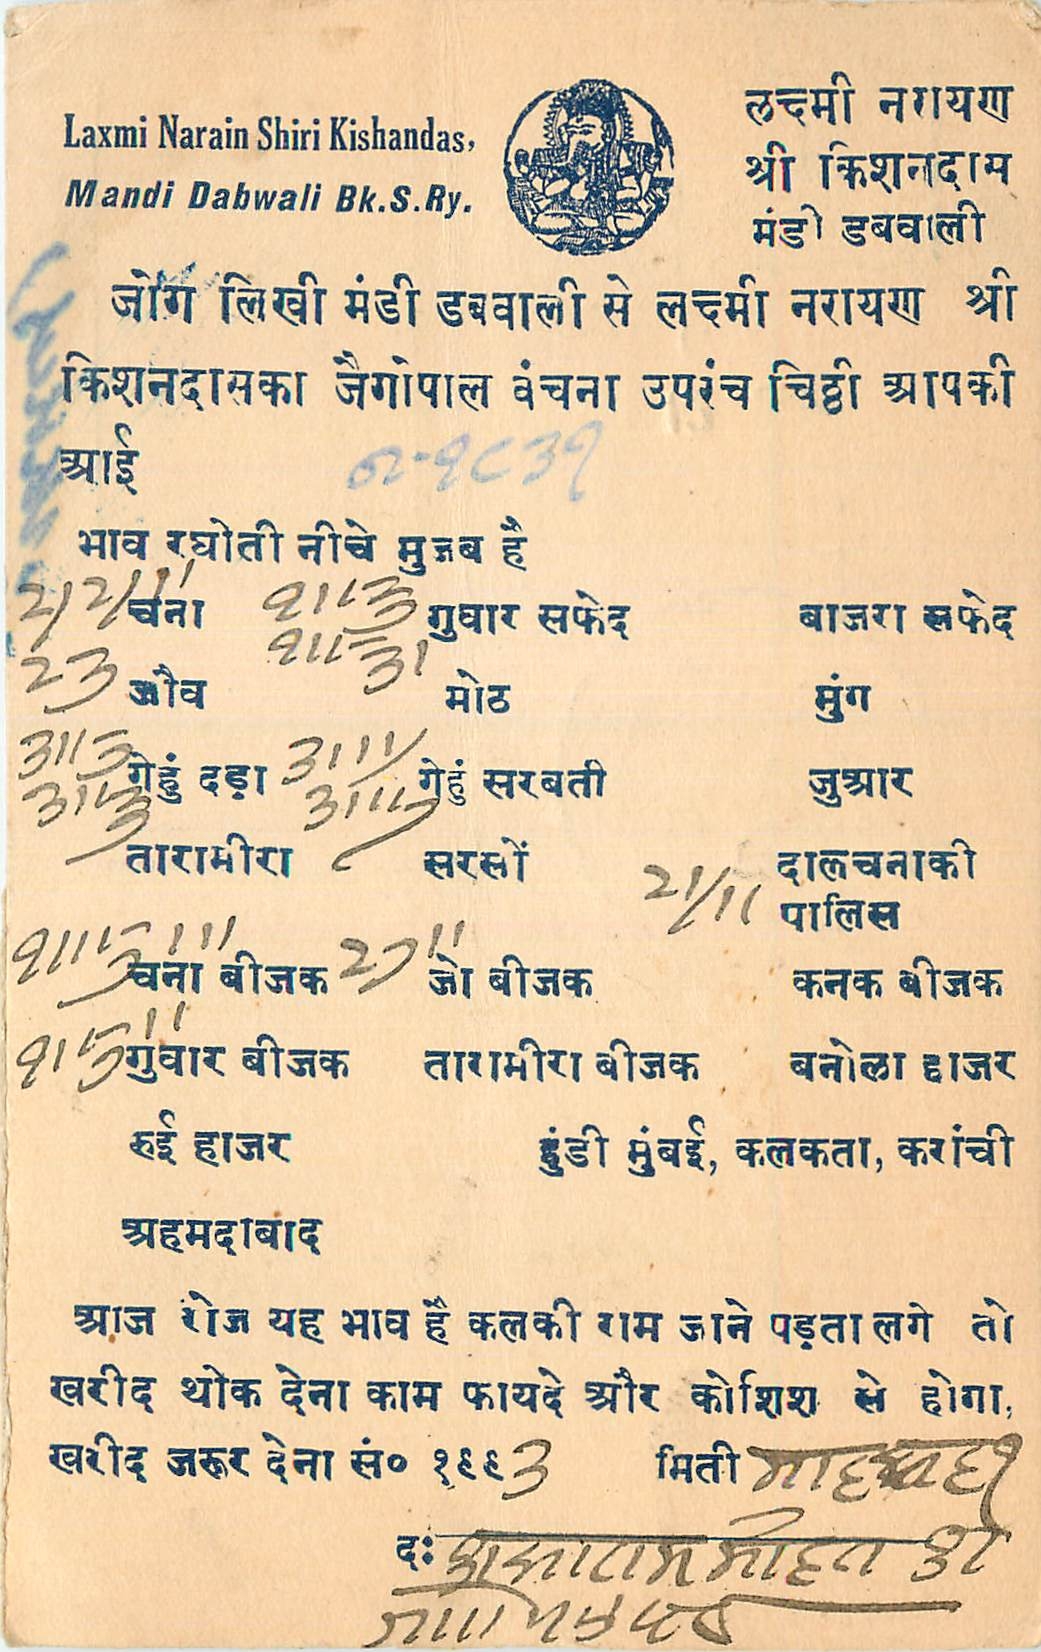 Laxmi Narain Shiri Kishandas,
Mandi Dabwali Bk.S.Ry.
लक्ष्मी नरायण
श्री किशनदास
मंडी डबवाली
जोग लिखी मंडी डबवाली से लक्ष्मी नरायण श्री
किशनदासका जैगोपाल बंचना उपरंच चिठ्ठी आपकी
आई
भाव रघोती नीचे मुजब है
चना गुवार सफेद बाजरा सफेद
२३ जौव मोठ मुंग
गेहुं दड़ा गेहुं सरबती जुआर
तारामीरा सरसों दालचनाकी
पालिस
चना बीजक जो बीजक कनक बीजक
गुवार बीजक तारामीरा बीजक बनोला हाजर
रुई हाजर हुंडी मुंबई, कलकता, करांची
अहमदाबाद
आज रोज यह भाव है कलकी राम जाने पड़ता लगे तो
खरीद थोक देना काम फायदे और कोशिश से होगा,
खरीद जरूर देना सं० १९९३ मिती
दः